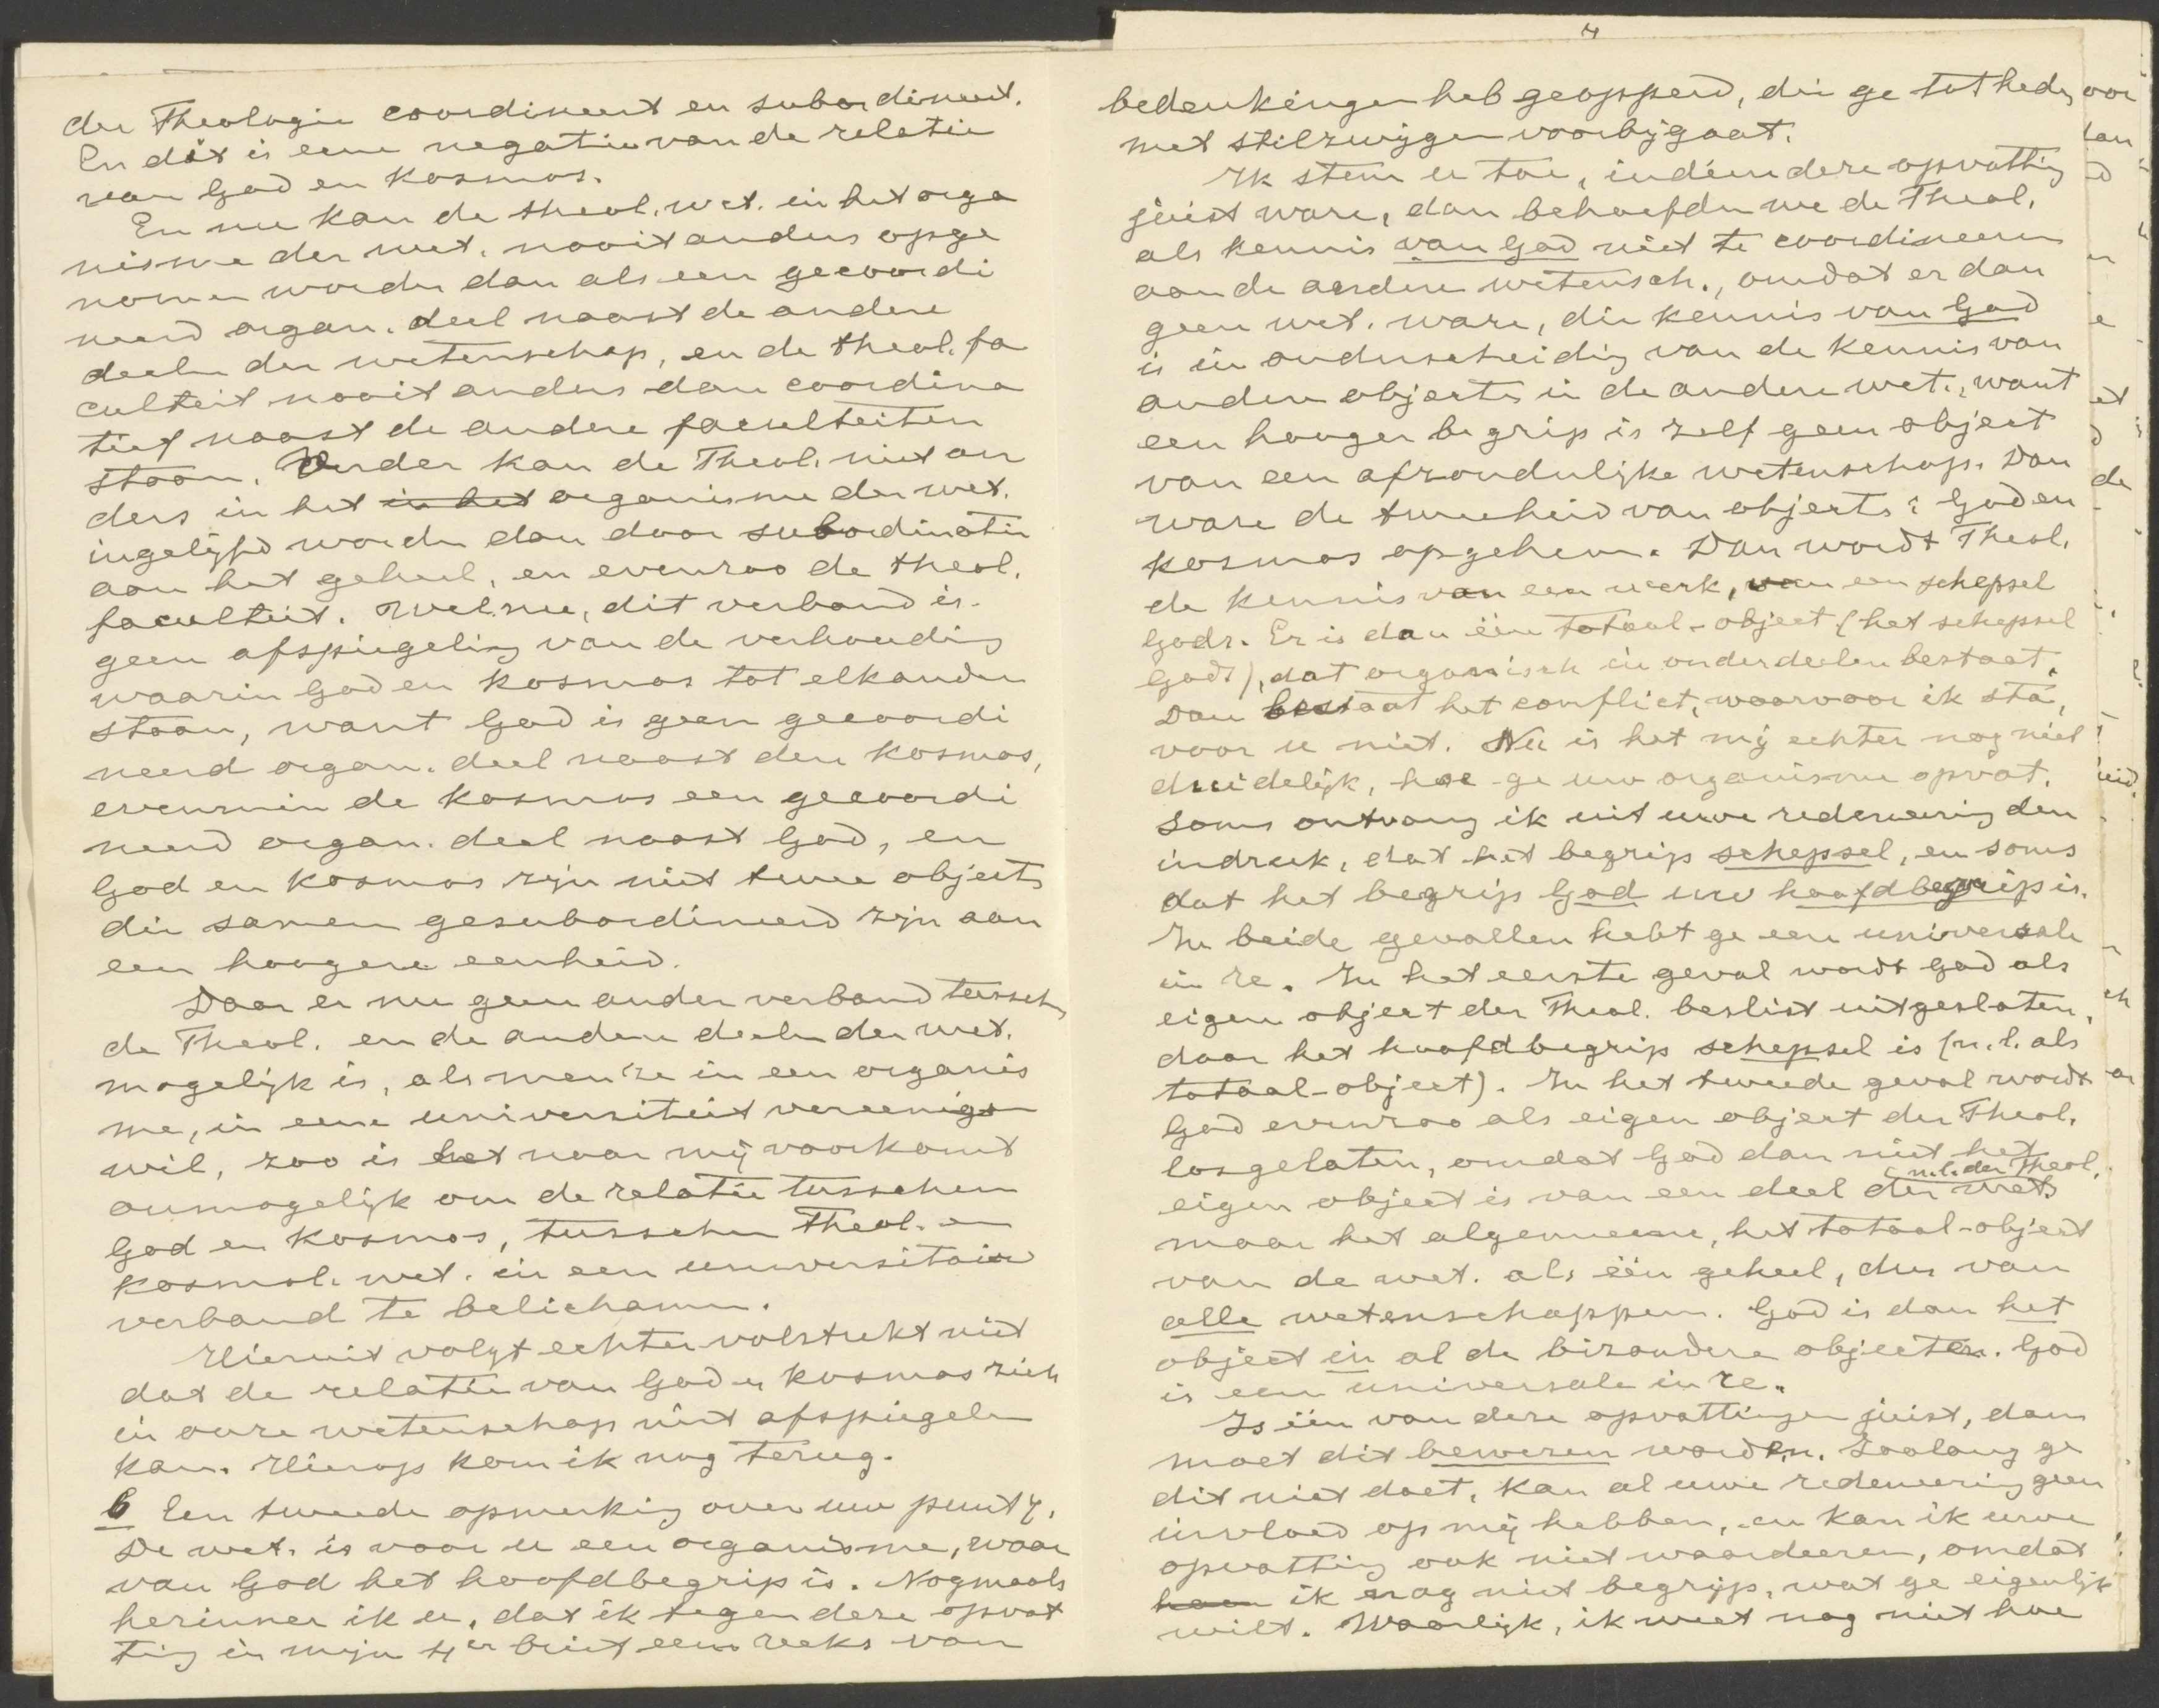 der Theologie coordineert en subordineert.
En dit is eene negatie van de relatie
van God en kosmos.
En nu kan de theol. wet. in het orga
nisme der wet. nooit anders opge
nomen worden dan als een gecoordi
neerd organ. deel naast de andere
deelen der wetenschap, en de theol. fa
culteit nooit anders dan coordina
tief naast de andere faculteiten
staan. Verder kan de Theol. niet an
ders in het in het organisme der wet.
ingelijfd worden dan door subordinatie
aan het geheel, en evenzoo de theol.
faculteit. Welnu, dit verband is
geen afspiegeling van de verhouding
waarin God en kosmos tot elkander
staan, want God is geen gecoordi
neerd organ. deel naast den kosmos,
evenmin de kosmos een gecoordi
neerd organ. deel naast God, en
God en kosmos zijn niet twee objects
die samen gesubordineerd zijn aan
een hoogere eenheid.
Daar er nu geen ander verband tusschen
de Theol. en de andere deelen der wet.
mogelijk is, als men ze in een organis
me, in eene universiteit vereenigen
wil, zoo is het naar mij voorkomt
onmogelijk om de relatie tusschen
God en kosmos, tusschen Theol. en
kosmol. wet. in een universitair
verband te belichamen.
Hieruit volgt echter volstrekt niet
dat de relatie van God en kosmos zich
in onze wetenschap niet afspiegelen
kan. Hierop kom ik nog terug.
b Een tweede opmerking over uw punt 4.
De wet. is voor u een organisme, waar
van God het hoofdbegrip is. Nogmaals
herinner ik u, dat ik tegen deze opvat
ting in mijn 4en brief eene reeks van
4
bedenkingen heb geopperd, die ge tot heden
met stilzwijgen voorbijgaat.
Ik stem u toe, indien deze opvatting
juist ware, dan behoefden we de Theol.
als kennis van God niet te coordineeren
aan de andere wetensch., omdat er dan
geen wet. ware, die kennis van God
is in onderscheiding van de kennis van
andere objects in de andere wet., want
een hooger begrip is zelf geen object
van een afzonderlijke wetenschap. Dan
ware de tweeheid van objects: God en
kosmos opgeheven. Dan wordt Theol.
de kennis van een werk, van een schepsel
Gods. Er is dan één totaal-object (het schepsel
Gods), dat organisch in onderdeelen bestaat.
Dan bestaat het conflict, waarvoor ik sta,
voor u niet. Nu is het mij echter nog niet
duidelijk, hoe ge uw organisme opvat.
Soms ontvang ik uit uwe redeneering den
indruk, dat het begrip schepsel, en soms
dat het begrip God uw hoofdbegrip is.
In beide gevallen hebt ge eene universale
in re. In het eerste geval wordt God als
eigen object der Theol. beslist uitgesloten,
daar het hoofdbegrip schepsel is (n.l. als
totaal-object). In het tweede geval wordt
God evenzoo als eigen object der Theol.
losgelaten, omdat God dan niet het
n.l. der Theol.
eigen object is van een deel der wet.
maar het algemeene, het totaal-object
van de wet. als één geheel, dus van
alle wetenschappen. God is dan het
object in al de bizondere objecten. God
is een universale in re.
Is één van deze opvattingen juist, dan
moet dit bewezen worden. Zoolang ge
dit niet doet, kan al uwe redeneering geen
invloed op mij hebben, en kan ik uwe
opvatting ook niet waardeeren, omdat
ik nog niet begrijp, wat ge eigenlijk
wilt. Waarlijk, ik weet nog niet hoe